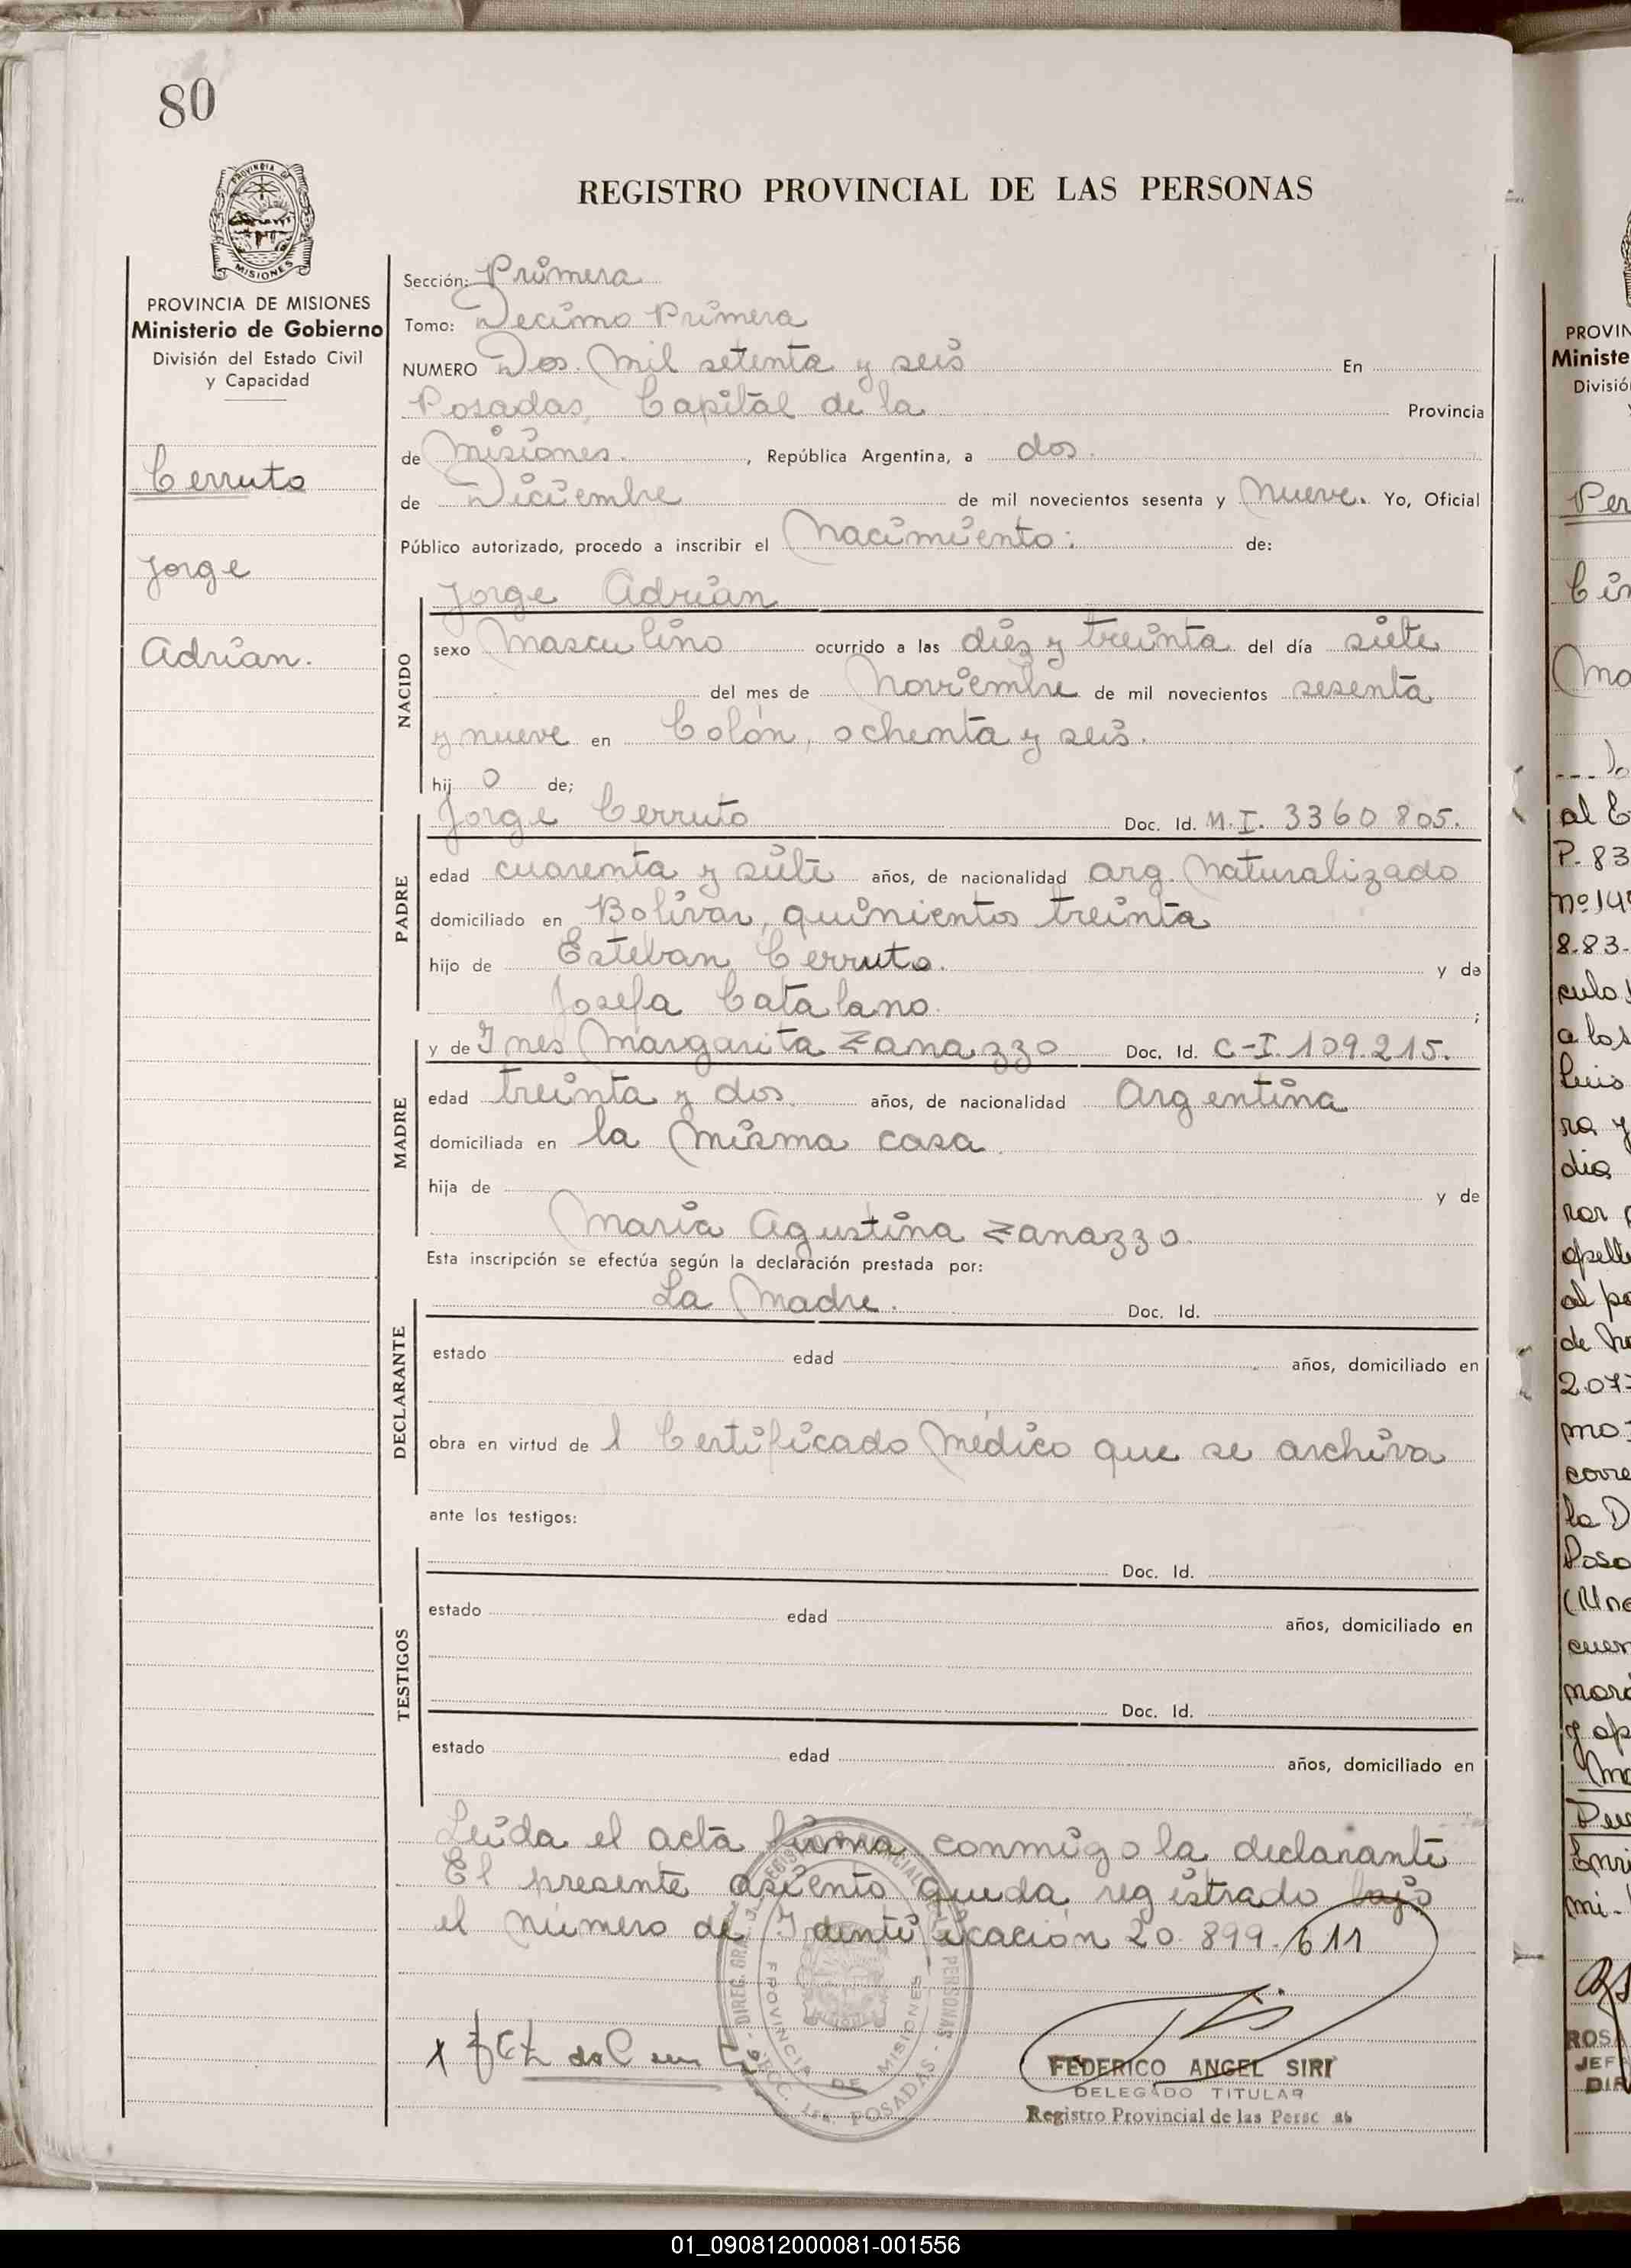 80
PROVINCIA DE MISIONES
REGISTRO PROVINCIAL DE LAS PERSONAS
PROVINCIA DE MISIONES
Ministerio de Gobierno
División del Estado Civil
y Capacidad
Cerruto
Jorge
Adrian.
Sección: Primera
Tomo: Decimo Primera
NUMERO Dos Mil setenta y seis En
Posadas, Capital de la Provincia
de Misiones. , República Argentina, a dos.
de Diciembre de mil novecientos sesenta y Nueve. Yo, Oficial
Público autorizado, procedo a inscribir el Nacimiento: de:
Jorge Adrian
NACIDO
sexo Masculino ocurrido a las diez y treinta del día siete
del mes de Noviembre de mil novecientos sesenta
y nueve en Colón, ochenta y seis.
hij o de;
Jorge Cerruto Doc. Id. M.I. 3360805.
PADRE
edad cuarenta y siete años, de nacionalidad arg. Naturalizado
domiciliado en Bolívar, quinientos treinta
hijo de Esteban Cerruto. y de
Josefa Catalano. ;
y de Ines Margarita Zanazzo Doc. Id. C-I. 109.215.
MADRE
edad treinta y dos años, de nacionalidad Argentina
domiciliada en la misma casa.
hija de y de
María Agustina Zanazzo.
Esta inscripción se efectúa según la declaración prestada por:
La Madre. Doc. Id.
DECLARANTE
estado edad años, domiciliado en
obra en virtud de 1 Certificado Médico que se archiva
ante los testigos:
Doc. Id.
TESTIGOS
estado edad años, domiciliado en
Doc. Id.
estado edad años, domiciliado en
Leida el acta firma conmigo la declarante
El presente asiento queda registrado bajo
el número de Identificación 20.899.611
PROVINCIA DE MISIONES
FEDERICO ANGEL SIRI
DELEGADO TITULAR
Registro Provincial de las Persc as
PROVIN
Ministe
Divisió
Per
al
P. 83
nº 14
8.83.
culo
a los
Luis
ra y
dia
al
de
la D
y
mi.
ROSA
JEF
DIR
01_090812000081-001556